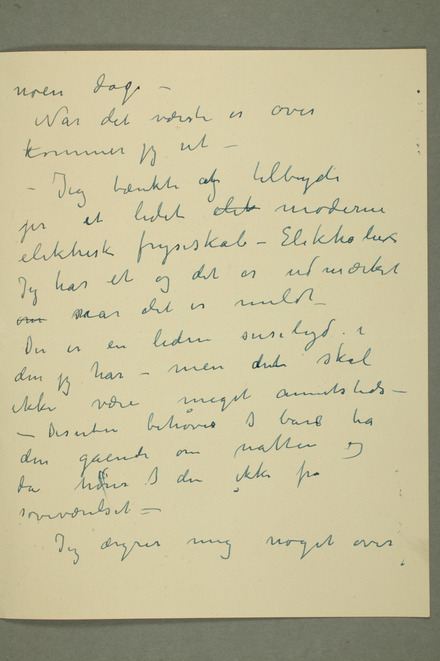 noen dage –
Når det værste er over
kommer jeg ut –
– Jeg tænkte at tilbyde
jer et lidet elek moderne
elektrisk fryseskab – Elektrolux
Jeg har et og det er udmærket
om naar det er mildt –
Der er en liden suselyd i
den jeg har – men den skal
ikke være meget annetsteds –
– Desuten behøver I bare ha
den gående om natten og
da hører I den ikke fra
soveværelset –
Jeg ærgrer mig noget over